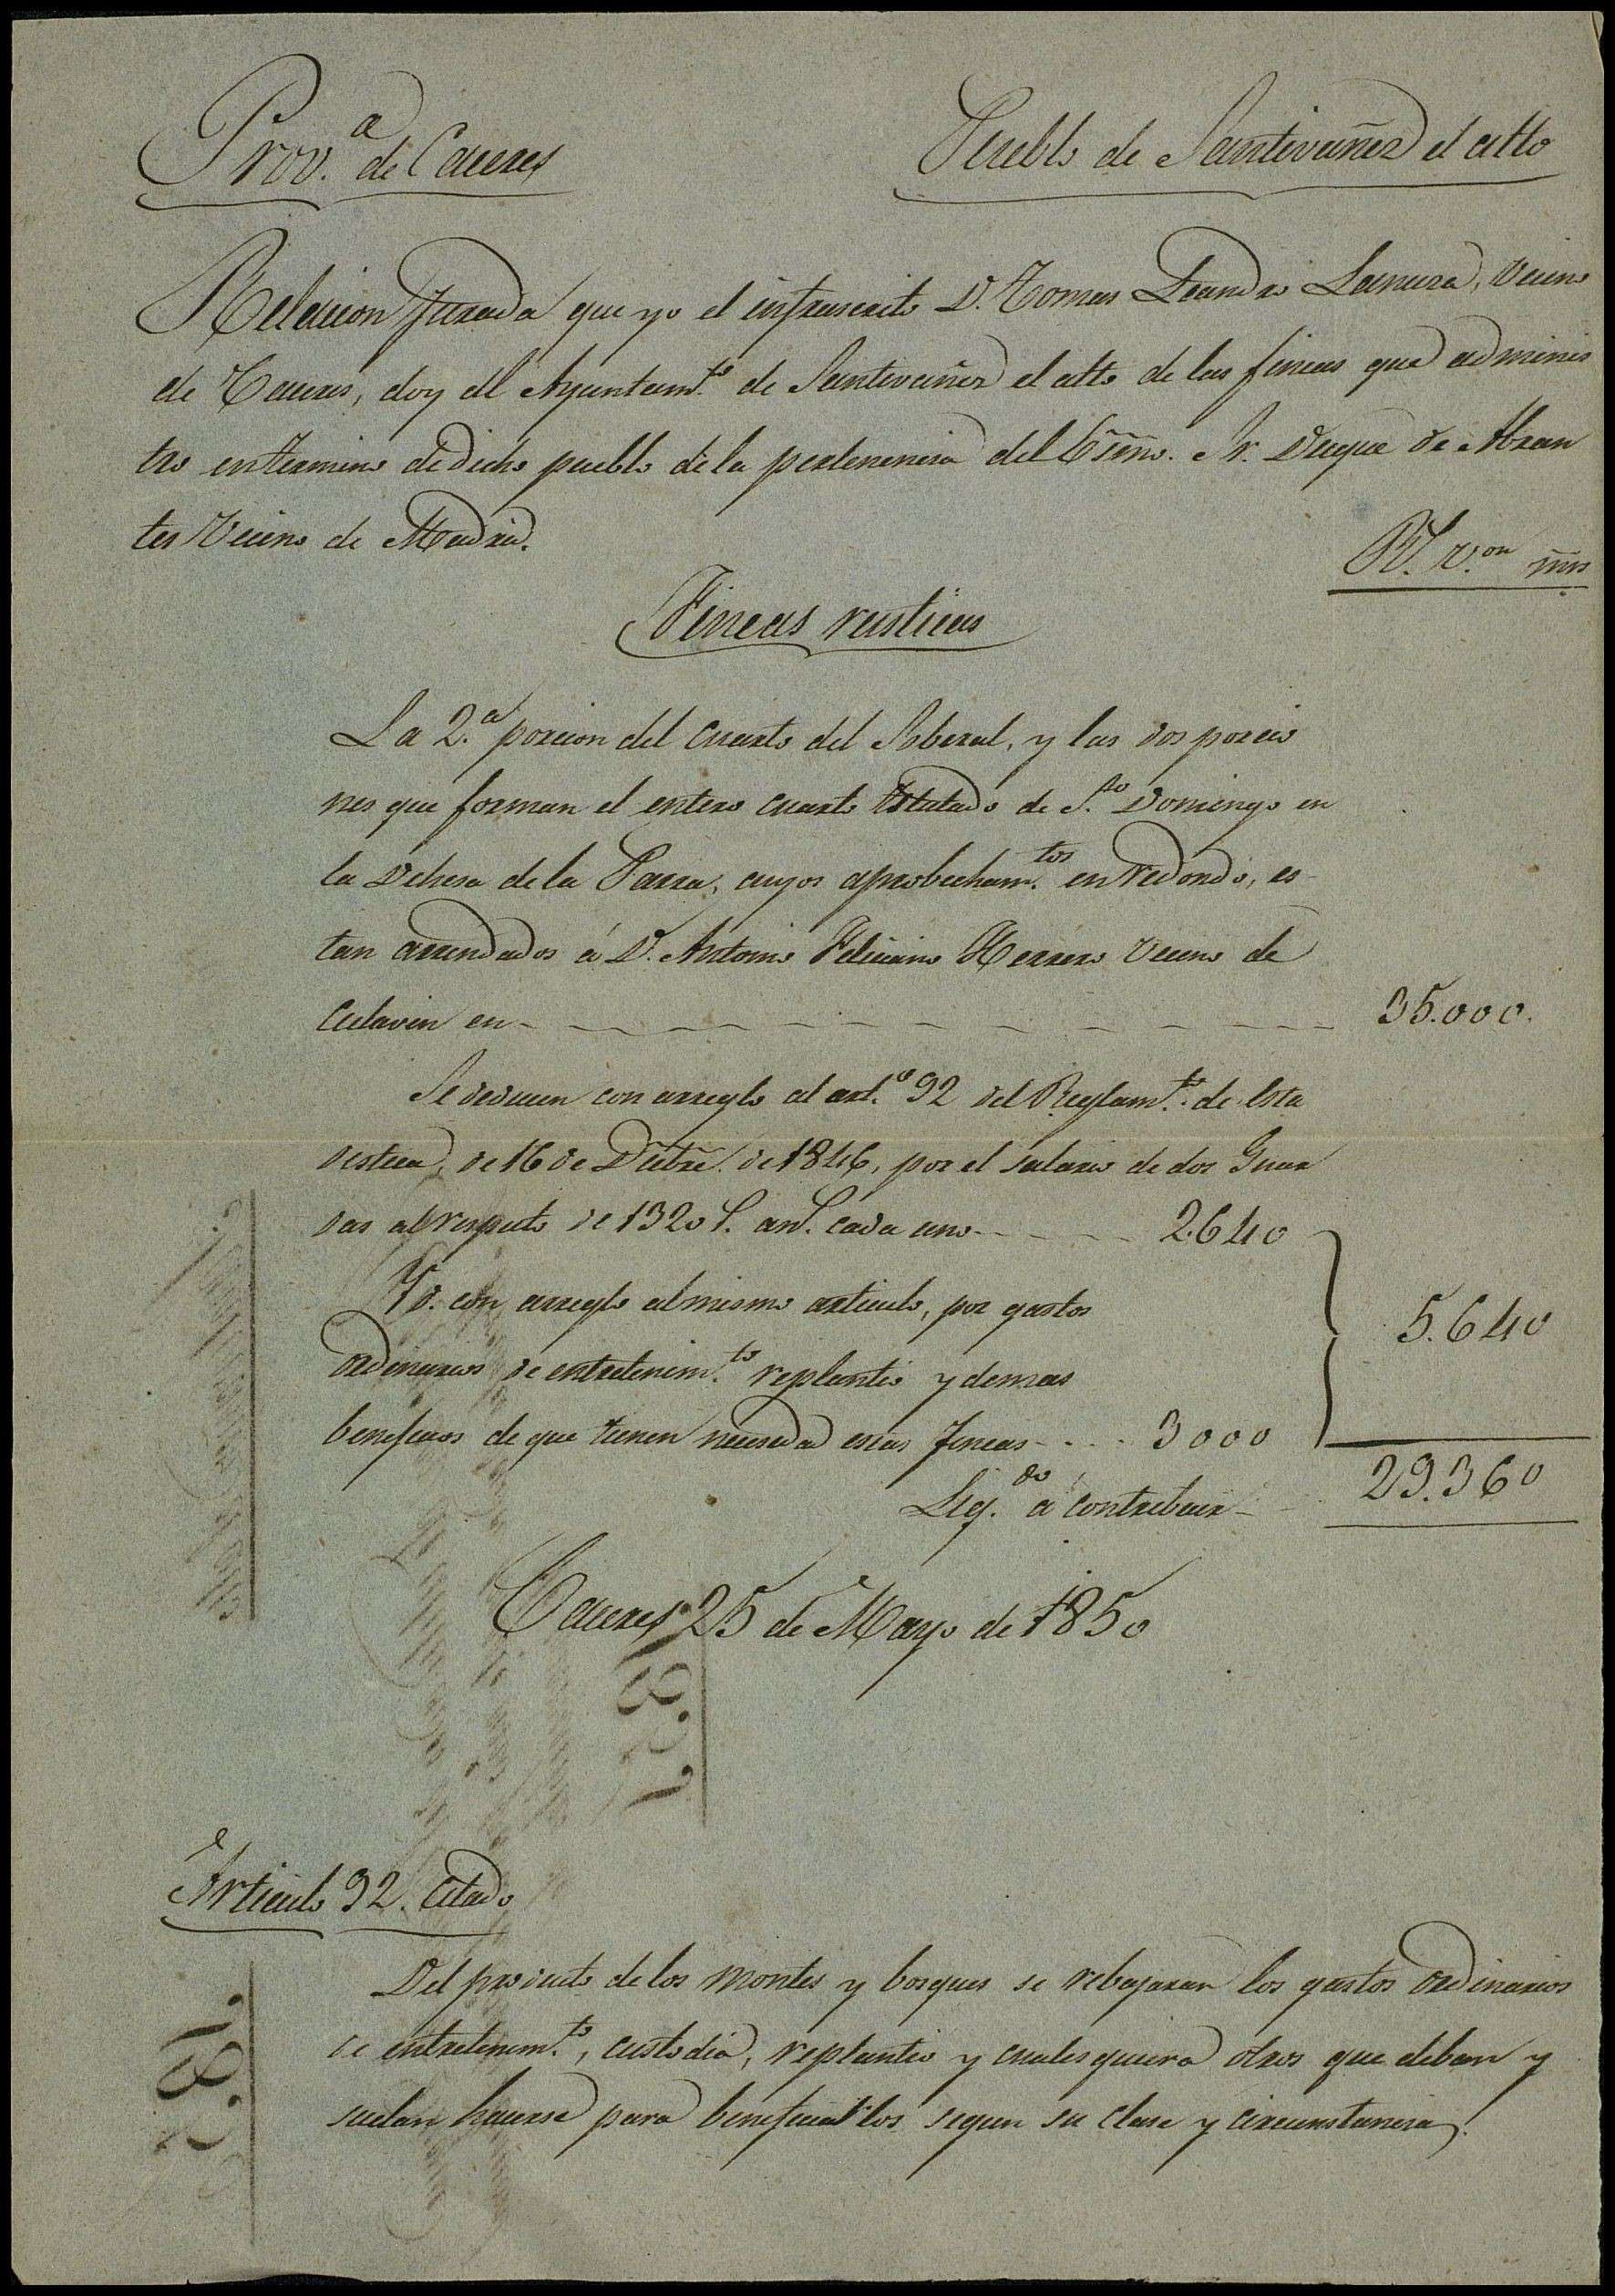 Prov.ª de Caceres
Pueblo de Santivañez el alto
Relacion Jurada que yo el infrascrito D. Tomas Leandro Lanuza, vecino
de Caceres, doy al Ayuntam.to de Santivañez el alto de las fincas que adminis
tro en termino de dicho pueblo de la pertenencia del Escmo. Sr. Duque de Abran
tes Vecino de Madrid.
Rs. v.on mrs
Fincas rusticas
La 2.ª porcion del cuarto del Roberal, y las dos porcio
nes que forman el entero cuarto titulado de S.to Domingo en
la Dehesa de la Parra, cuyos aprobecham.tos en redondo, es
tan arrendados á D. Antonio Feliciano Herrero Vecino de
Ceclavin en 35.000.
Se deducen con arreglo al art.º 92 del Reglam.to de Esta
distica, de 16 de Dicbre. de 1846, por el salario de dos Guar
das al respecto de 1320 r. an.s cada uno 2640
Yd. con arreglo al mismo articulo, por gastos
5.640
ordinarios de entretenim.to replantio y demas
beneficios de que tienen necesidad estas fincas 3000
Liq.do á contribuir 29.360
Caceres 25 de Mayo de 1850
Articulo 92. Citado
Del producto de los montes y bosques se rebajaran los gastos ordinarios
de entretenim.to, custodia, replantio y cualesquiera otros que deban y
suelan hacerse para beneficiarlos segun su clase y circunstancia.